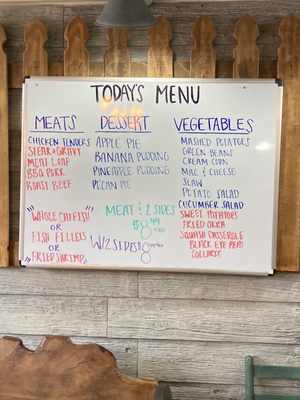 TODAY'S MENU
MEATS
CHICKEN TENDERS
STEAK & GRAVY
MEAT LOAF
BBQ PORK
ROAST BEEF
"WHOLE CATFISH"
OR
FISH FILLETS
OR
"FRIED SHRIMP"
DESSERT
APPLE PIE
BANANA PUDDING
PINEAPPLE PUDDING
PECAN PIE
MEAT & 2 SIDES
$8.49
W/2 SIDES
VEGETABLES
MASHED POTATOES
GREEN BEANS
CREAM CORN
MAC & CHEESE
SLAW
POTATO SALAD
CUCUMBER SALAD
SWEET POTATOES
FRIED OKRA
SQUASH CASSEROLE
BLACK EYE PEAS